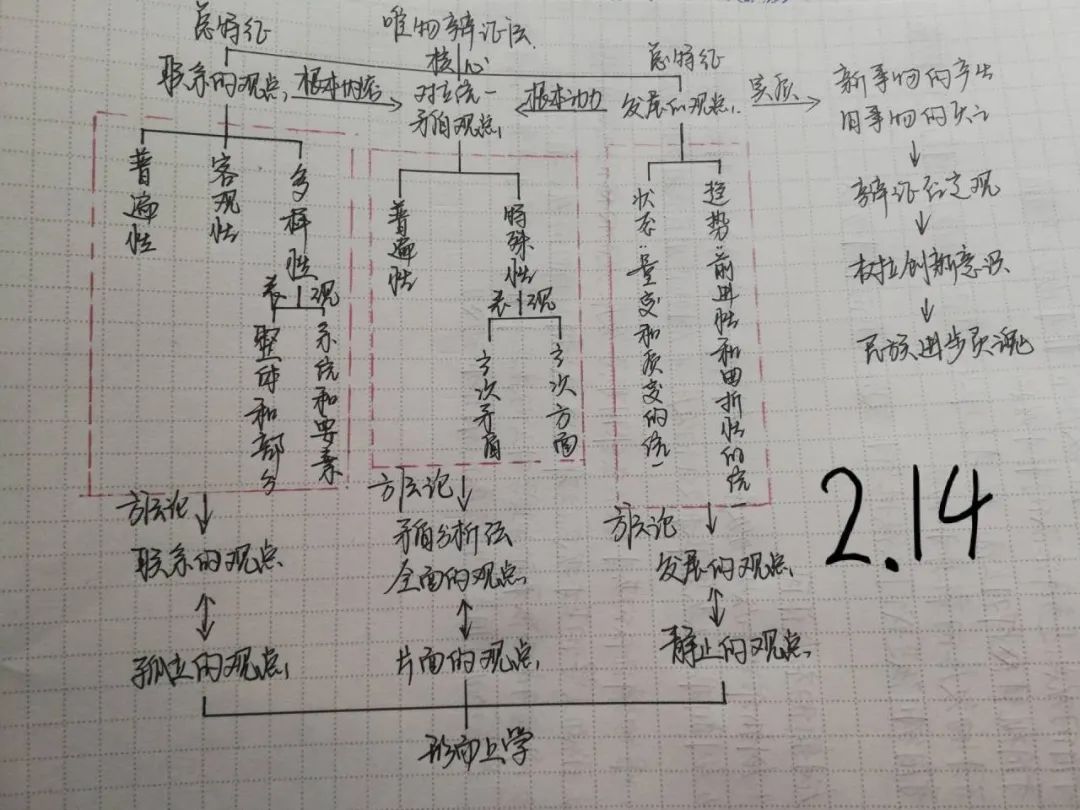 总特征
唯物辩证法
总特征
核心
联系的观点
根本内容
对立统一
矛盾观点
根本动力
发展的观点
实质
新事物的产生
旧事物的灭亡
辩证否定观
树立创新意识
民族进步灵魂
普遍性
客观性
多样性
表现
整体和部分
系统和要素
普遍性
特殊性
表现
主次矛盾
主次方面
状态:量变和质变的统一
趋势:前进性和曲折性的统一
2.14
方法论
联系的观点
孤立的观点
方法论
矛盾分析法
全面的观点
片面的观点
方法论
发展的观点
静止的观点
形而上学